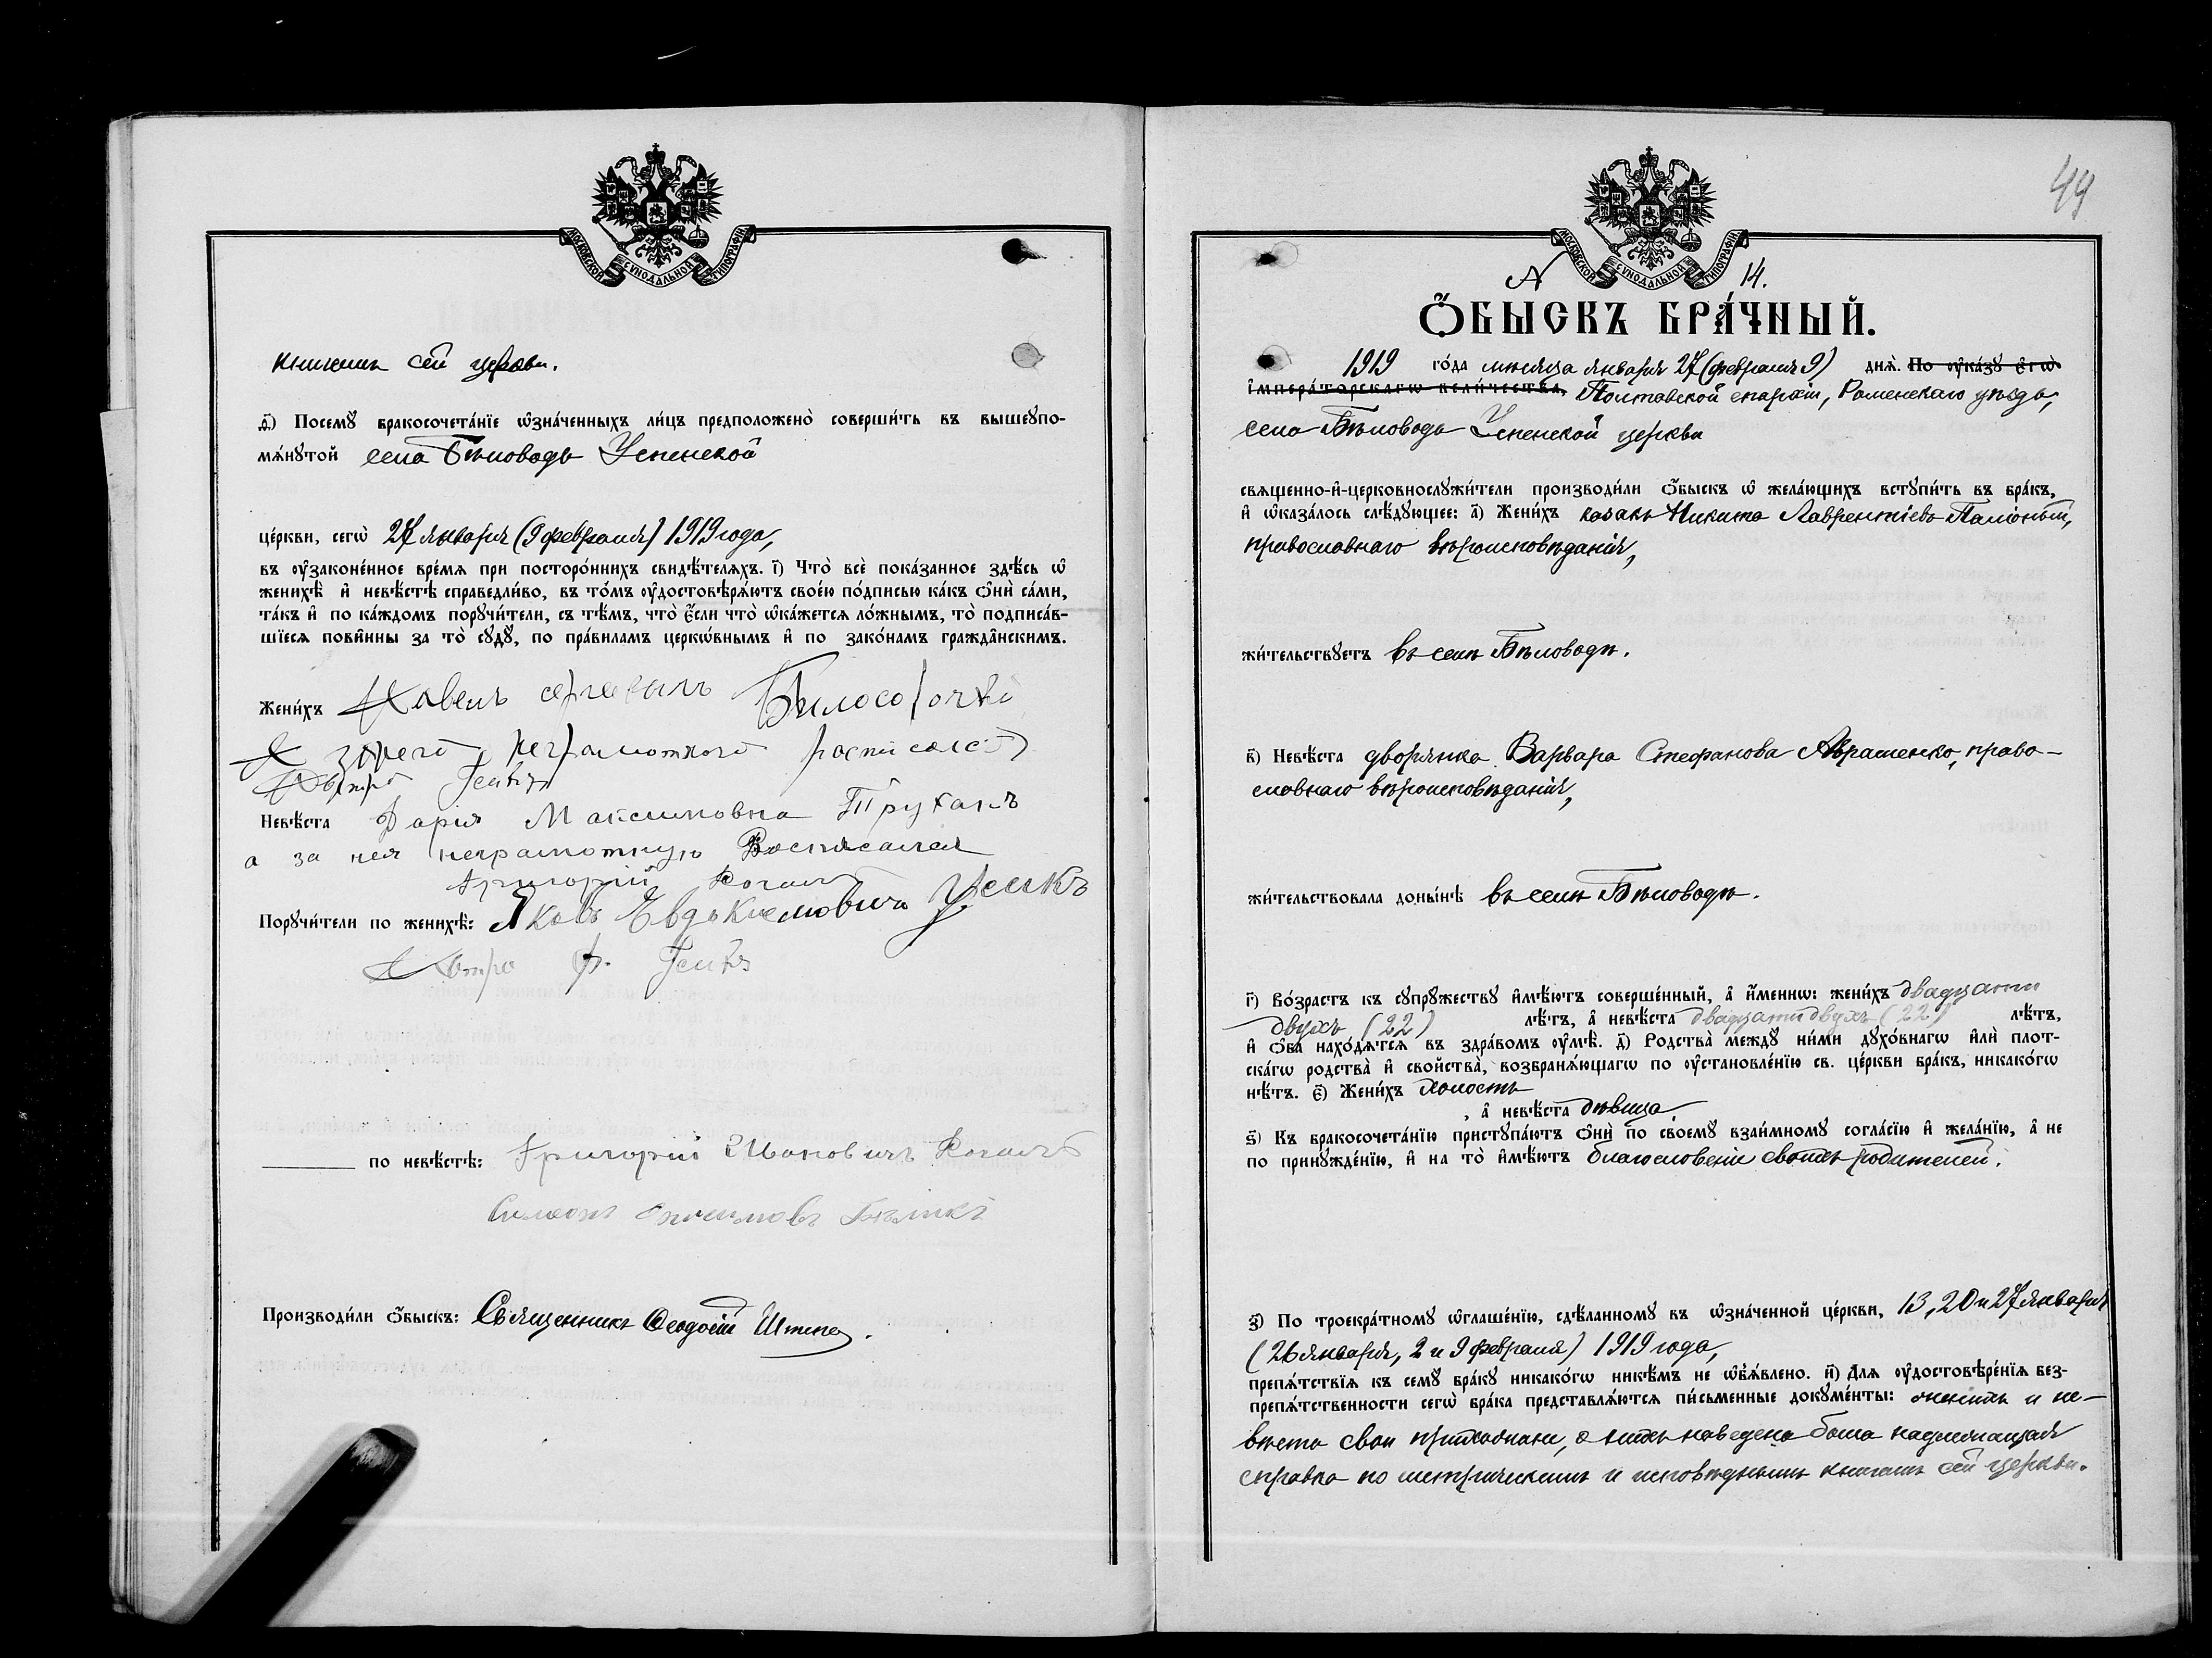 МОСКОВСКОЙ СѴНОДАЛЬНОЙ ТИПОГРАФІИ.
книгамъ сей церкви.
ѳ҃) Посемꙋ̀ бракосочета́нїе ѡ҆зна́ченныхъ ли́цъ предположено̀ соверши́ть въ вышеꙋпо-
мѧ́нꙋтой села Бѣловодъ Успенской
це́ркви, сегѡ̀ 27 января (9 февраля) 1919 года,
въ ᲂу҆зако́ненное вре́мѧ при посторо́ннихъ свидѣ́телѧхъ. і҃) Что̀ всѐ пока́занное здѣ́сь ѡ҆
женихѣ̀ и҆ невѣ́стѣ справедли́во, въ то́мъ ᲂу҆достовѣрѧ́ютъ свое́ю по́дписью ка́къ ѻ҆нѝ са́ми,
та́къ и҆ по ка́ждомъ порꙋчи́тели, съ тѣ́мъ, что̀ є҆́сли что̀ ѡ҆ка́жетсѧ ло́жнымъ, то̀ подписа́в-
шїесѧ пови́нны за то̀ сꙋдꙋ̀, по пра́виламъ церкѡ́внымъ и҆ по зако́намъ гражда̂нскимъ.
Жени́хъ Павелъ
неграмотного
Невѣ́ста Дарія Максимовна Труханъ
а за нея неграмотную Росписался
Григорій
Порꙋчи́тели по женихѣ̀: Яковъ Евдокимовичъ
по невѣ́стѣ: Григорій Ивановичъ
Симеонъ
Производи́ли ѻ҆́быскъ: Священникъ Ѳеодосій Штепа.
49
МОСКОВСКОЙ СѴНОДАЛЬНОЙ ТИПОГРАФІИ.
14.
Ѻ҆́БЫСКЪ БРА́ЧНЫЙ.
1919 го́да мѣсяца января 27 (февраля 9) днѧ̀. По ᲂу҆ка́зꙋ є҆гѡ̀
і҆мпера́торскагѡ вели́чества, Полтавской епархіи, Роменскаго уѣзда,
села Бѣловодъ Успенской церкви
свѧщенно-и҆-церковнослꙋжи́тели производи́ли ѻ҆́быскъ ѡ҆ жела́ющихъ встꙋпи́ть въ бра́къ,
и҆ ѡ҆каза́лось слѣ́дꙋющее: а҃) Жени́хъ козакъ Никита Лаврентіевъ Паліоный,
православнаго вѣроисповѣданія,
жи́тельствꙋетъ въ селѣ Бѣловодѣ.
в҃) Невѣ́ста дворянка Варвара Стефанова Авраменко, право-
славнаго вѣроисповѣданія,
жи́тельствовала доны́нѣ въ селѣ Бѣловодѣ.
г҃) Во́зрастъ къ сꙋпрꙋ́жествꙋ и҆мѣ́ютъ соверше́нный, а҆ и҆́меннѡ: жени́хъ двадцати
двухъ (22) лѣ́тъ, а҆ невѣ́ста двадцати двухъ (22) лѣ́тъ,
и҆ ѻ҆́ба нахо́дѧтсѧ въ здра́вомъ ᲂу҆мѣ̀. д҃) Родства̀ междꙋ̀ ни́ми дꙋхо́внагѡ и҆лѝ плот-
ска́гѡ родства̀ и҆ сво́йства̀, возбранѧ́ющагѡ по ᲂу҆становле́нїю св. це́ркви бра́къ, никако́гѡ
нѣ́тъ. є҃) Жени́хъ холостъ
, а҆ невѣ́ста дѣвица.
ѕ҃) Къ бракосочета́нїю пристꙋпа́ютъ ѻ҆нѝ по своемꙋ̀ взаи́мномꙋ согла́сїю и҆ жела́нїю, а҆ не
по принꙋжде́нїю, и҆ на то̀ и҆мѣ́ютъ благословеніе своихъ родителей.
з҃) По троекра́тномꙋ ѡ҆глаше́нїю, сдѣ́ланномꙋ въ ѡ҆зна́ченной це́ркви, 13, 20 и 27 января
(26 января, 2 и 9 февраля) 1919 года,
препѧ́тствїѧ къ семꙋ̀ бра́кꙋ никако́гѡ никѣ́мъ не ѡ҆б̾ѧ́влено. и҃) Длѧ ᲂу҆достовѣре́нїѧ без-
препѧ́тственности сегѡ̀ бра́ка представлѧ́ютсѧ пи́сьменные докꙋме́нты: женихъ и не-
вѣста свои прихожане, о нихъ наведена была надлежащая
справка по метрическимъ и исповѣднымъ книгамъ сей церкви.